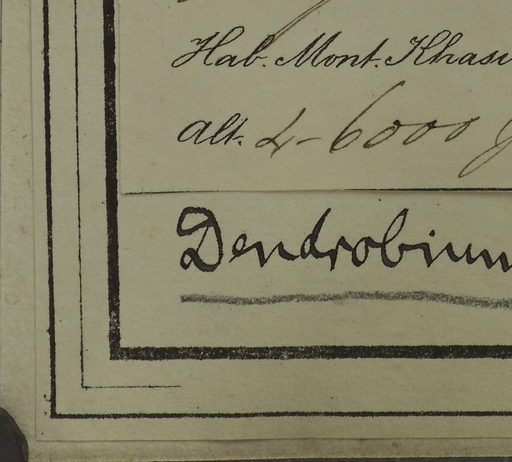 Hab. Mont. Khasi
Alt. 4-6000
Dendrobium